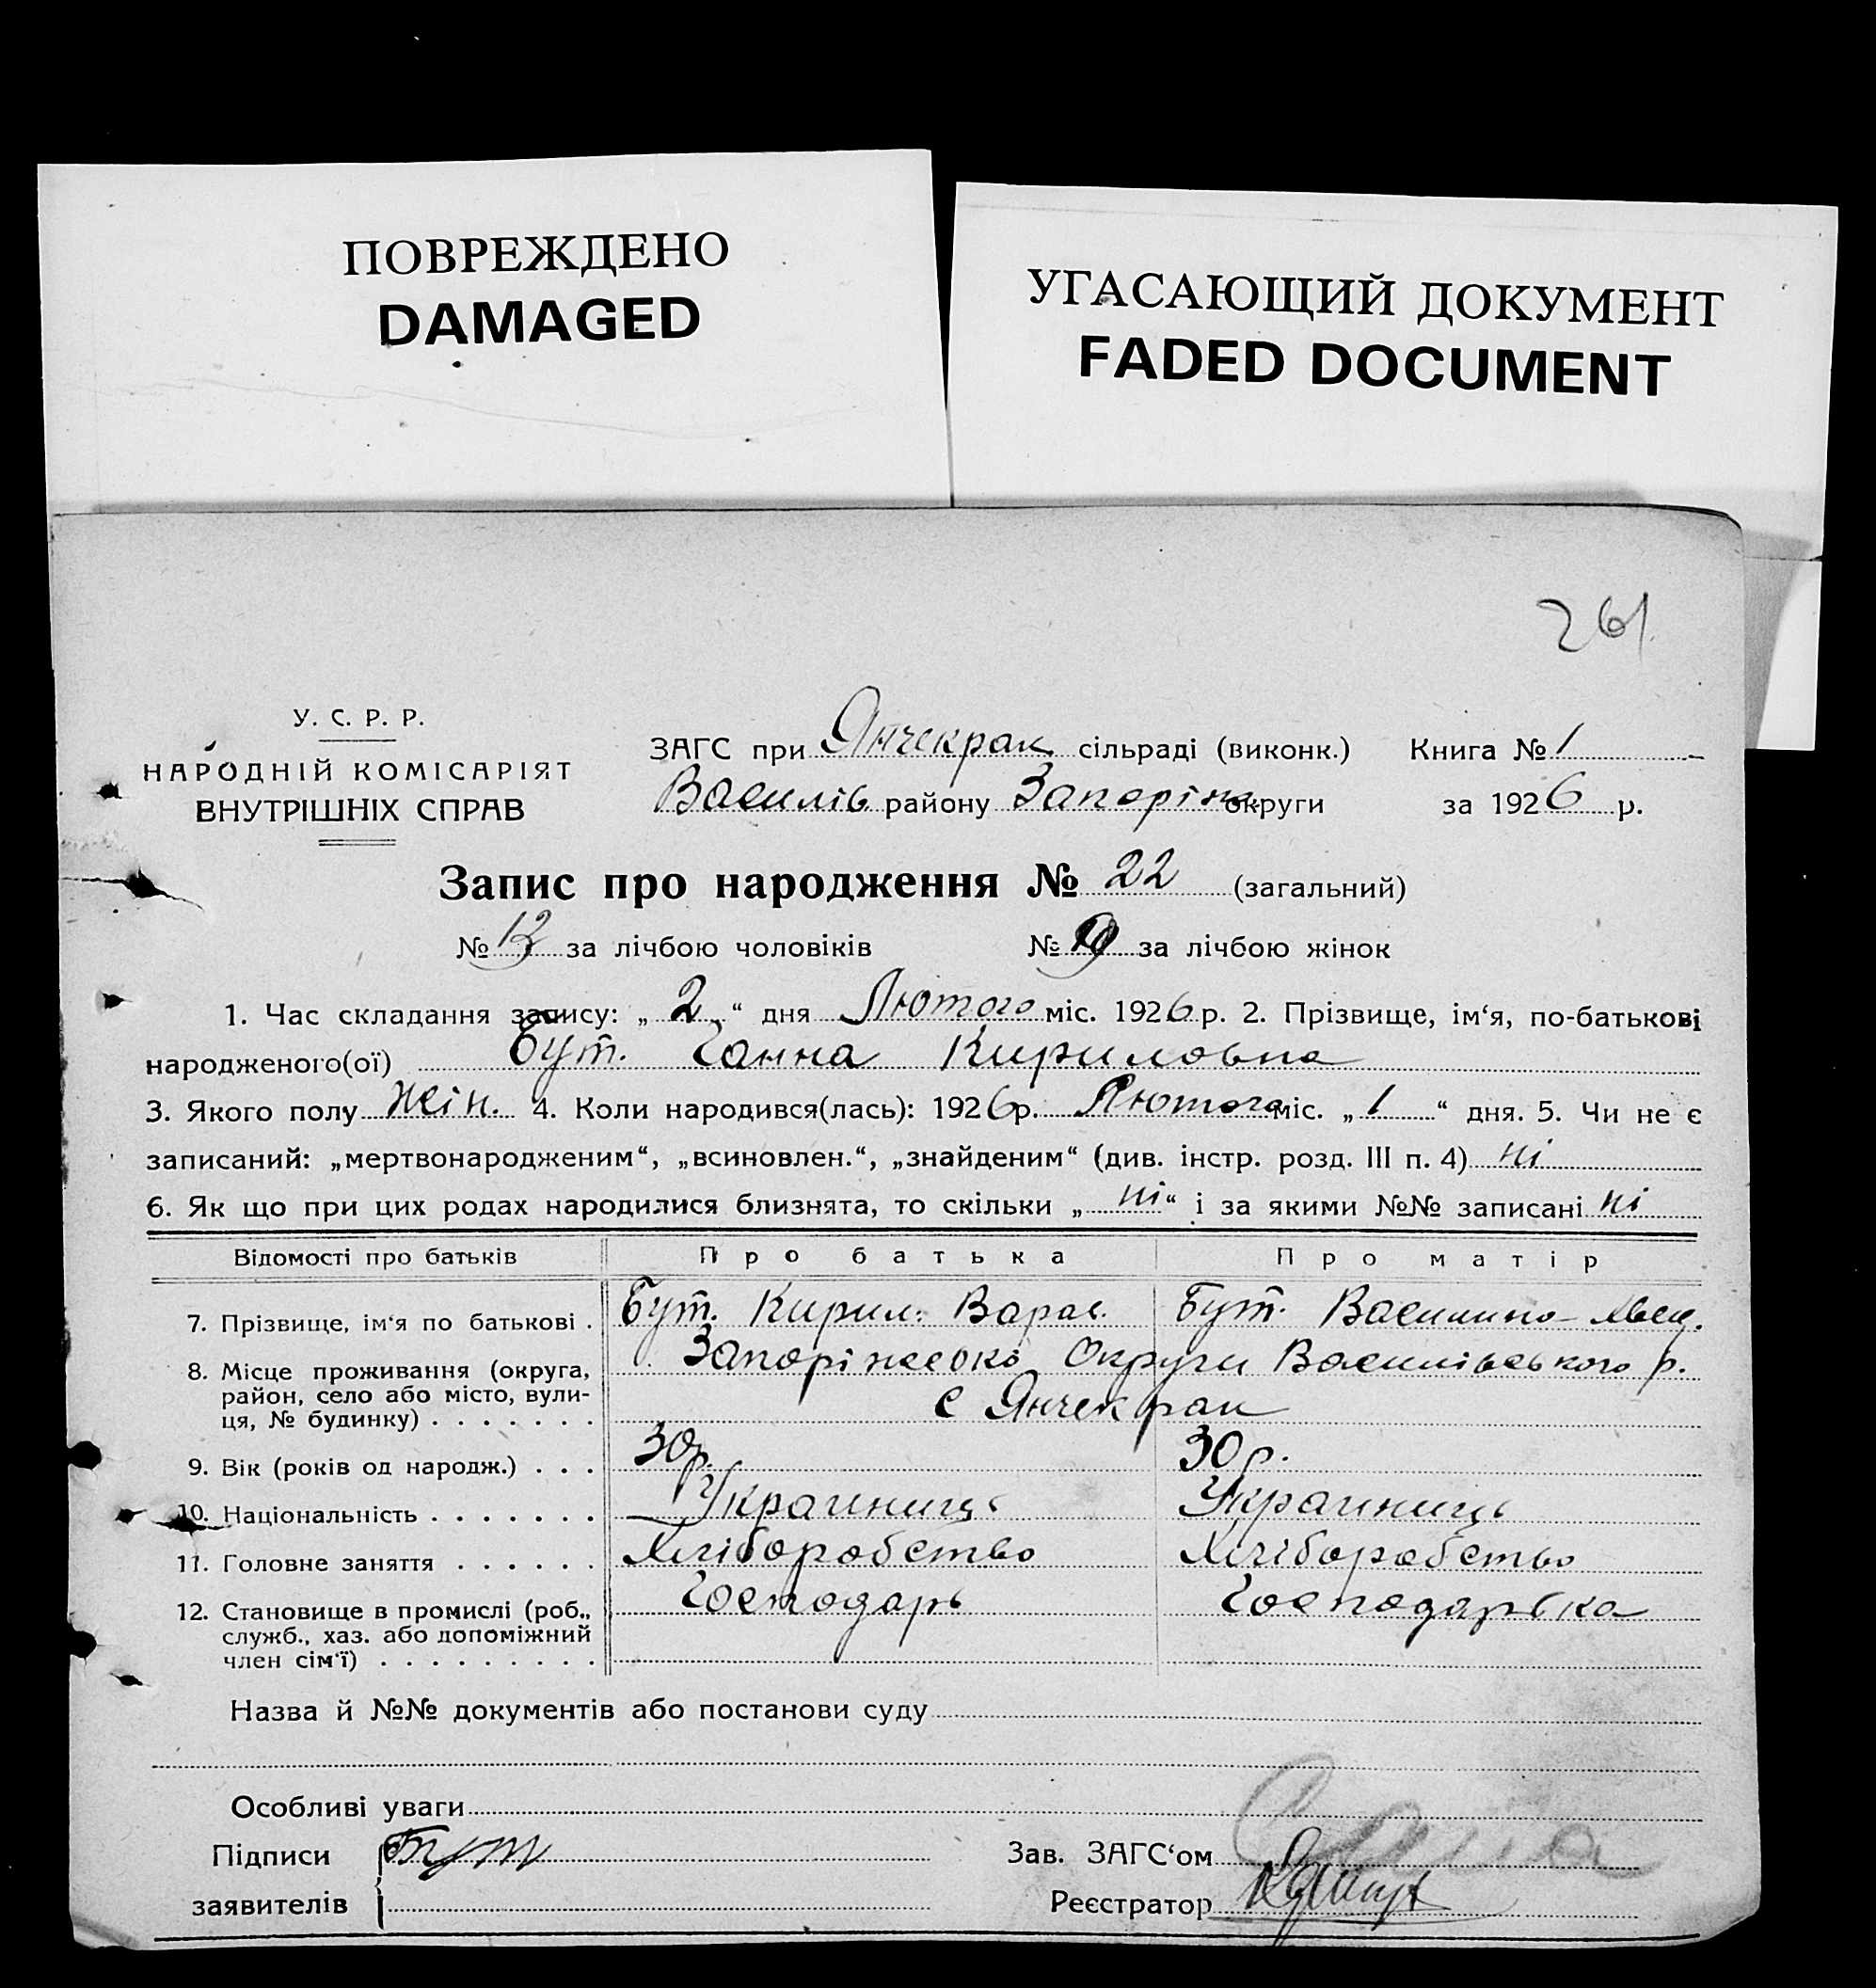 ПОВРЕЖДЕНО
DAMAGED
УГАСАЮЩИЙ ДОКУМЕНТ
FADED DOCUMENT
261
У. С. Р. Р.
НАРОДНІЙ КОМІСАРІЯТ
ВНУТРІШНІХ СПРАВ
ЗАГС при Янчекрак сільраді (виконк.) Книга № 1
Василів району Запоріж округи за 1926 р.
Запис про народження № 22 (загальний)
№ 13 за лічбою чоловіків № 9 за лічбою жінок
1. Час складання запису: „ 2 “ дня Лютого міс. 1926 р. 2. Прізвище, ім‘я, по-батькові
народженого(ої) Бут. Ганна Кириловна
3. Якого полу жін. 4. Коли народився(лась): 1926р. Лютого міс. „ 1 “ дня. 5. Чи не є
записаний: „мертвонародженим“, „всиновлен.“, „знайденим“ (див. інстр. розд. III п. 4) ні
6. Як що при цих родах народилися близнята, то скільки „ ні “ і за якими №№ записані ні
Відомості про батьків Про батька Про матір
7. Прізвище, ім‘я по батькові . Бут. Кирил: Варас. Бут.
8. Місце проживання (округа, район, село або місто, вули- ця, № будинку) . . . . . . . Запоріжсько Округи Василівського р.
с Янчекрак
9. Вік (років од народж.) . . . 30р. 30р.
10. Національність . . . . . . . Украиниць Украиниць
11. Головне заняття . . . . . . Хліборобство Хліборобство
12. Становище в промислі (роб., служб., хаз. або допоміжний член сім‘ї) . . . . . . . . . Господарь Господарька
Назва й №№ документів або постанови суду
Особливі уваги
Підписи заявителів Бут
Зав. ЗАГС‘ом
Реєстратор